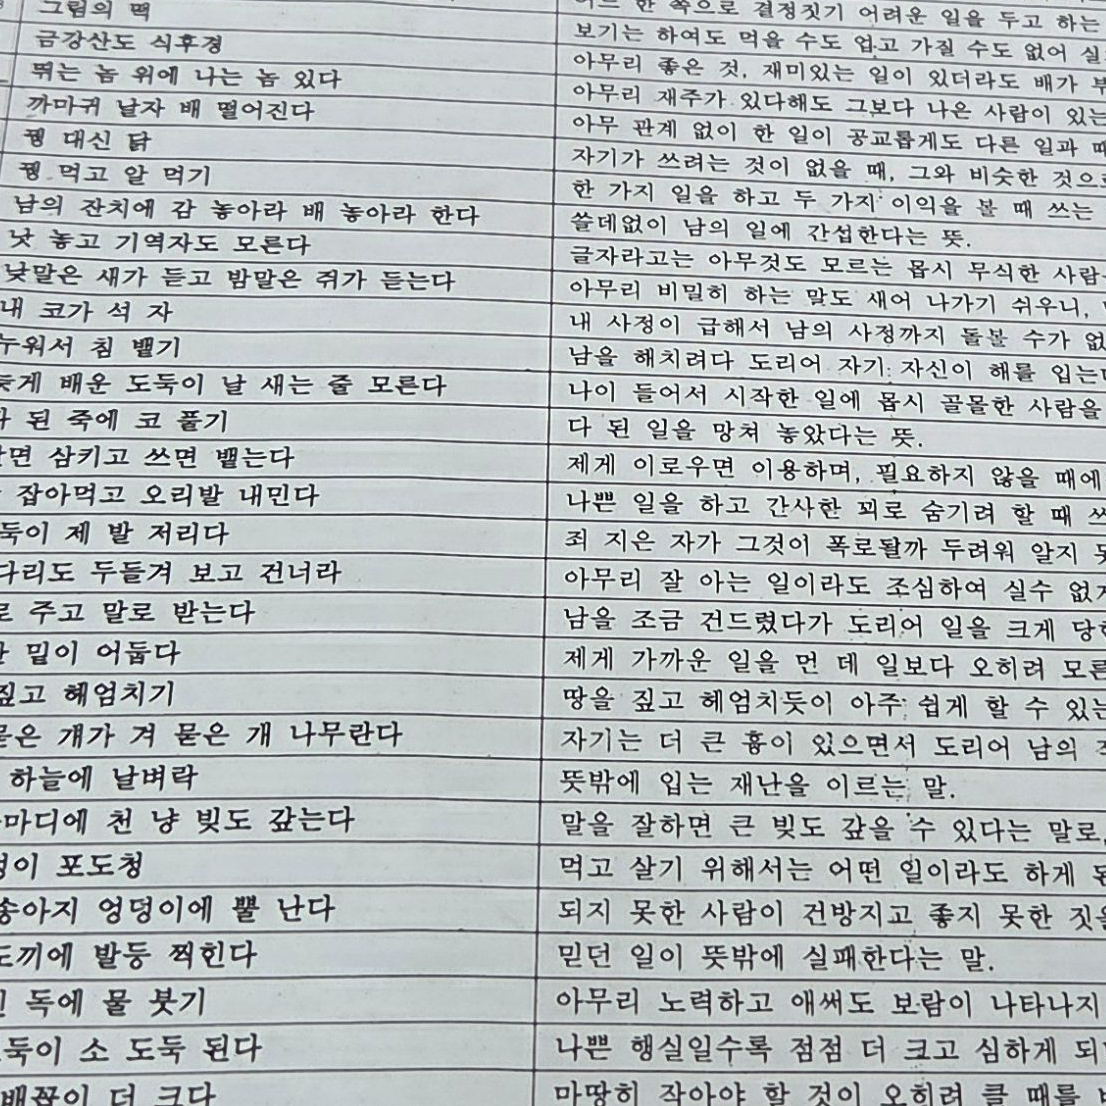 한 쪽으로 결정짓기 어려운 일을 두고 하는
그림의 떡 보기는 하여도 먹을 수도 없고 가질 수도 없어
금강산도 식후경 아무리 좋은 것, 재미있는 일이 있더라도 배가
뛰는 놈 위에 나는 놈 있다 아무리 재주가 있다해도 그보다 나은 사람이 있는
까마귀 날자 배 떨어진다 아무 관계 없이 한 일이 공교롭게도 다른 일과
꿩 대신 닭 자기가 쓰려는 것이 없을 때, 그와 비슷한 것으로
꿩 먹고 알 먹기 한 가지 일을 하고 두 가지 이익을 볼 때 쓰는
남의 잔치에 감 놓아라 배 놓아라 한다 쓸데없이 남의 일에 간섭한다는 뜻.
낫 놓고 기역자도 모른다 글자라고는 아무것도 모르는 몹시 무식한 사람
낮말은 새가 듣고 밤말은 쥐가 듣는다 아무리 비밀히 하는 말도 새어 나가기 쉬우니,
내 코가 석 자 내 사정이 급해서 남의 사정까지 돌볼 수가
누워서 침 뱉기 남을 해치려다 도리어 자기 자신이 해를
늦게 배운 도둑이 날 새는 줄 모른다 나이 들어서 시작한 일에 몹시 골몰한 사람을
된 죽에 코 풀기 다 된 일을 망쳐 놓았다는 뜻.
삼키고 쓰면 뱉는다 제게 이로우면 이용하며, 필요하지 않을 때에
잡아먹고 오리발 내민다 나쁜 일을 하고 간사한 꾀로 숨기려 할 때
제 발 저리다 죄 지은 자가 그것이 폭로될까 두려워 알지
두들겨 보고 건너라 아무리 잘 아는 일이라도 조심하여 실수
주고 말로 받는다 남을 조금 건드렸다가 도리어 일을 크게
밑이 어둡다 제게 가까운 일을 먼 데 일보다 오히려
짚고 헤엄치기 땅을 짚고 헤엄치듯이 아주 쉽게 할 수 있는
걔가 겨 묻은 개 나무란다 자기는 더 큰 흉이 있으면서 도리어 남의
하늘에 날벼락 뜻밖에 입는 재난을 이르는 말.
천 냥 빚도 갚는다 말을 잘하면 큰 빚도 갚을 수 있다는 말로,
포도청 먹고 살기 위해서는 어떤 일이라도 하게
송아지 엉덩이에 뿔 난다 되지 못한 사람이 건방지고 좋지 못한
발등 찍힌다 믿던 일이 뜻밖에 실패한다는 말.
독에 물 붓기 아무리 노력하고 애써도 보람이 나타나지
소 도둑 된다 나쁜 행실일수록 점점 더 크고 심하게
배꼽이 더 크다 마땅히 작아야 할 것이 오히려 클 때를